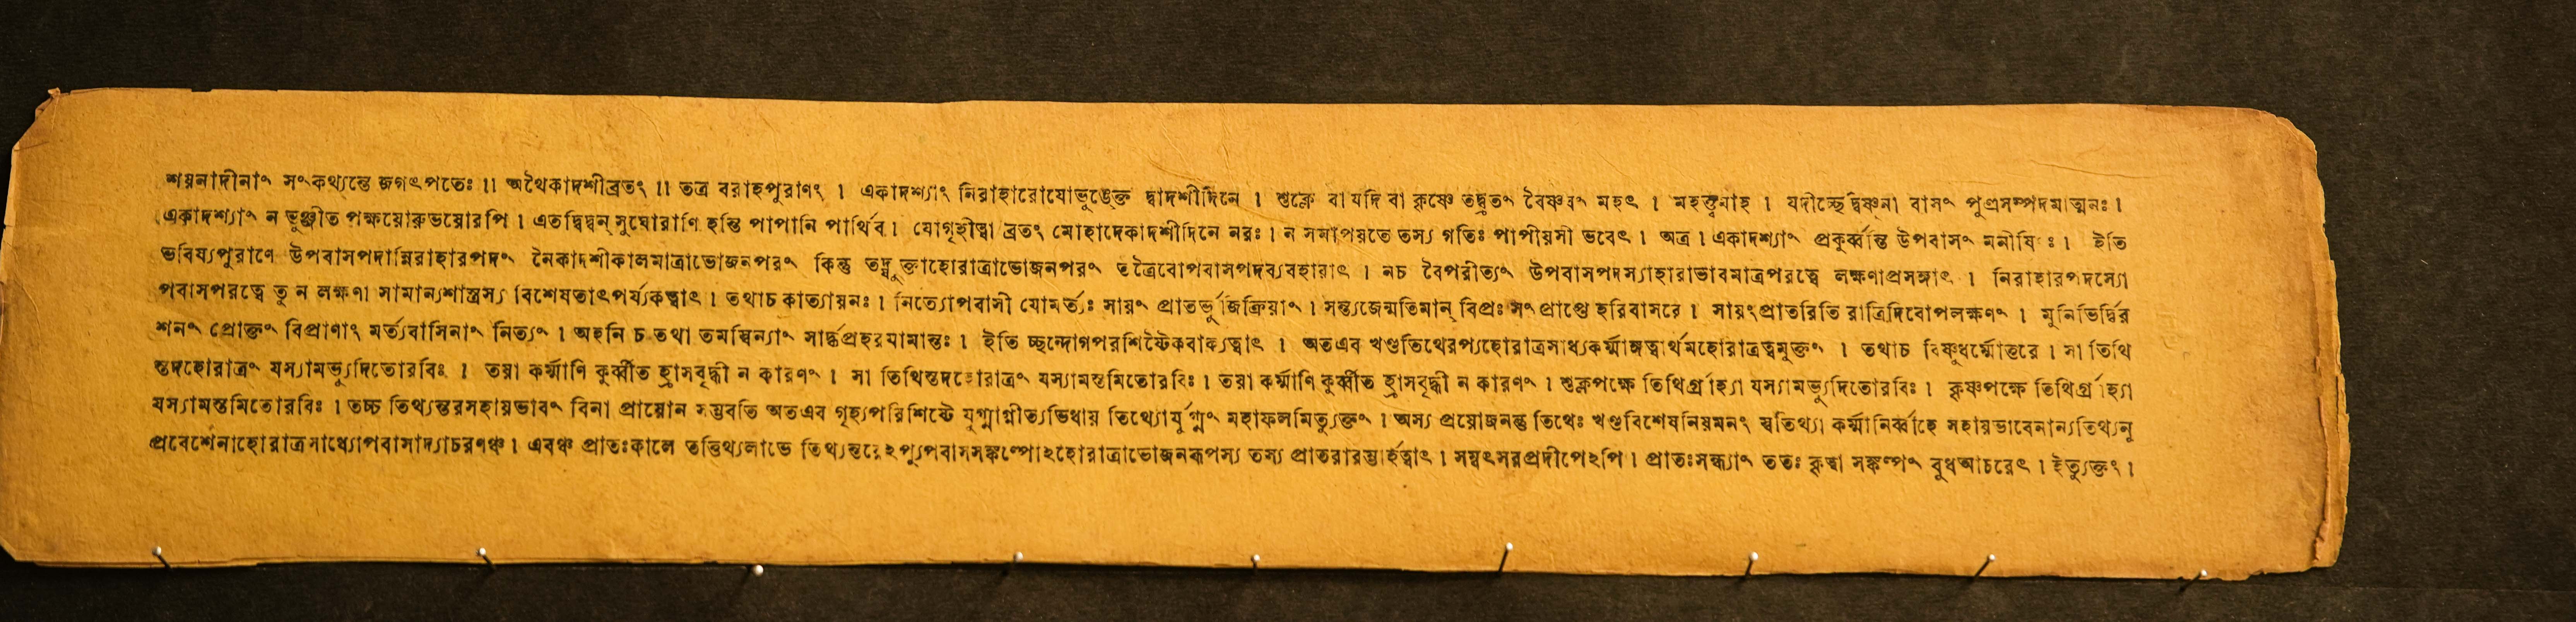 শয়নাদীনাং সংকথ্যন্তে জগৎপতেঃ ॥ অথৈকাদশীব্রতং ॥ তত্র বরাহপুরাণং । একাদশ্যাং নিরাহারোযোভুঙেক্ত দ্বাদশীদিনে । শুক্লে বা যদি বা কৃষ্ণে তদ্ব্রতং বৈষ্ণবং মহৎ । যদীচ্ছেদ্বিষ্ণুনা বাসং পুত্রসম্পদমাত্মনঃ ।
একাদশ্যাং ন ভুঞ্জীত পক্ষয়োরুভয়োরপি । এতদ্বিদ্বন্ সুঘোরাণি হন্তি পাপানি পার্থিব । যোগৃহীত্বা ব্রতং মোহাদেকাদশীদিনে নরঃ । ন সমাপয়তে তস্য গতিঃ পাপীয়সী ভবেৎ । অত্র । একাদশ্যাং প্রকুর্ব্বন্তি উপবাসং মনীষিণঃ । ইতি
ভবিষ্যপুরাণে উপবাসপদান্নিরাহারপদং নৈকাদশীকালমাত্রাভোজনপরং কিন্তু তদ্যুক্তাহোরাত্রাভোজনপরং তত্রৈবোপবাসপদব্যবহারাৎ । নচ বৈপরীত্যং উপবাসপদস্যাহারাভাবমাত্রপরত্বে লক্ষণাপ্রসঙ্গাৎ । নিরাহারপদস্যো
পবাসপরত্বে তু ন লক্ষণা সামান্যশাস্ত্রস্য বিশেষতাৎপর্য্যকত্বাৎ । তথাচ কাত্যায়নঃ । নিত্যোপবাসী যোমর্ত্যঃ সায়ং প্রাতর্ভুজিক্রিয়াং । সন্ত্যজেন্মতিমান্ বিপ্রঃ সংপ্রাপ্তে হরিবাসরে । সায়ংপ্রাতরিতি রাত্রিদিবোপলক্ষণং । মুনিভির্দ্বির
শনং প্রোক্তং বিপ্রাণাং মর্ত্যবাসিনাং নিত্যং । অহনি চ তথা তমস্বিন্যাং সার্দ্ধপ্রহরযামান্তঃ । ইতি চ্ছন্দোগপরশিষ্টৈকবাক্যত্বাৎ । অতএব খণ্ডতিথেরপ্যহোরাত্রসাধ্যকর্ম্মাঙ্গত্বার্থমহোরাত্রত্বমুক্তং । তথাচ বিষ্ণুধর্ম্মোত্তরে । সা তিথি
স্তদহোরাত্রং যস্যামভ্যুদিতোরবিঃ । তয়া কর্ম্মাণি কুর্ব্বীত হ্রাসবৃদ্ধী ন কারণং । সা তিথিস্তদহোরাত্রং যস্যামস্তমিতোরবিঃ । তয়া কর্ম্মাণি কুর্ব্বীত হ্রাসবৃদ্ধী ন কারণং । শুক্লপক্ষে তিথির্গ্রাহ্যা যস্যামভ্যুদিতোরবিঃ । কৃষ্ণপক্ষে তিথির্গ্রাহ্যা
যস্যামস্তমিতোরবিঃ । তচ্চ তিথ্যন্তরসহায়ভাবং বিনা প্রায়োন সম্ভবতি অতএব গৃহ্যপরিশিষ্টে যুগ্মাগ্নীত্যভিধায় তিথ্যোর্যুগ্মং মহাফলমিত্যুক্তং । অস্য প্রয়োজনন্তু তিথেঃ খণ্ডবিশেষনিয়মনং স্বতিথ্যা কর্ম্মানির্ব্বাহে সহায়ভাবেনান্যতিথ্যনু
প্রবেশেনাহোরাত্রসাধ্যোপবাসাদ্যাচরণঞ্চ । এবঞ্চ প্রাতঃকালে তত্তিথ্যলাভে তিথ্যন্তরেঽপ্যুপবাসসঙ্কল্পোঽহোরাত্রাভোজনরূপস্য তস্য প্রাতরারম্ভার্হত্বাৎ । সম্বৎসরপ্রদীপেঽপি । প্রাতঃসন্ধ্যাং ততঃ কৃত্বা সঙ্কল্পং বুধআচরেৎ । ইত্যুক্তং ।